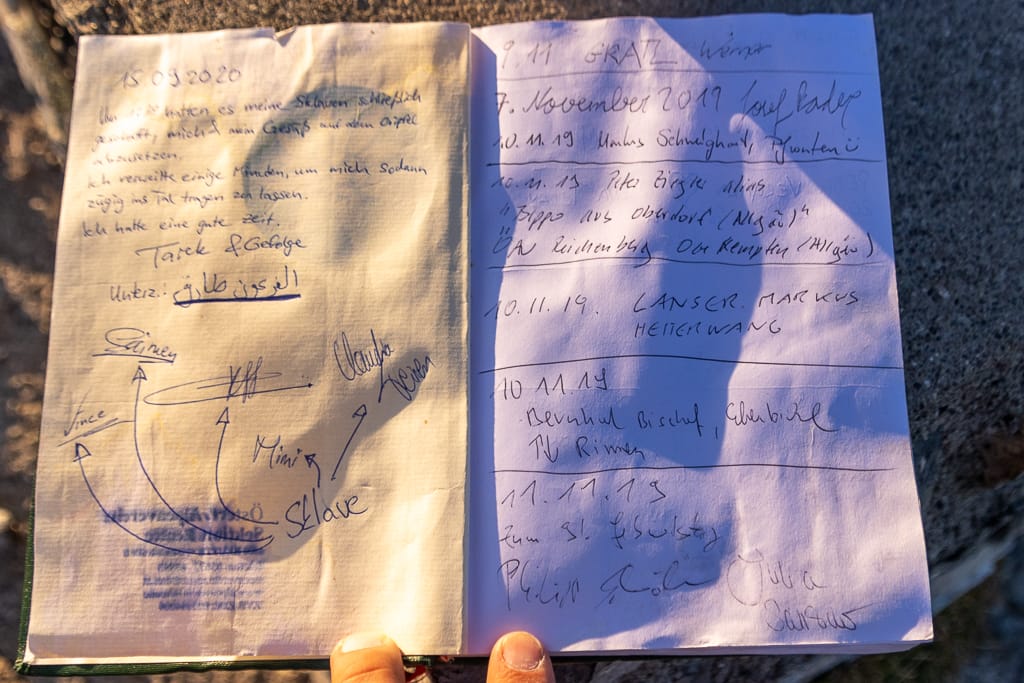 15.09.2020
Um hatten es meine Sklaven schließlich
geschafft, mich & mein Gesäß auf dem Gipfel
abzusetzen.
Ich verweilte einige Minuten, um mich sodann
zügig ins Tal tragen zu lassen.
Ich hatte eine gute Zeit.
Tarek & Gefolge
Unterz.: الفرعون طارق
Vince
Claudia
Mimi
Sklave
9.11 GRATL Werner
7. November 2019 Josef
10.11.19 Schweighart, Pfronten
10.11.19 Peter Ziegler alias
"Zippo aus Oberdorf (Allgäu)"
ÖAV Reichenberg Kempten (Allgäu)
10.11.19. LANSER MARKUS
HEITERWANG
10 11.19
Bernhard Bischof,
TV Rinnen
11.11.19
Zum Geburtstag
Philipp Julia